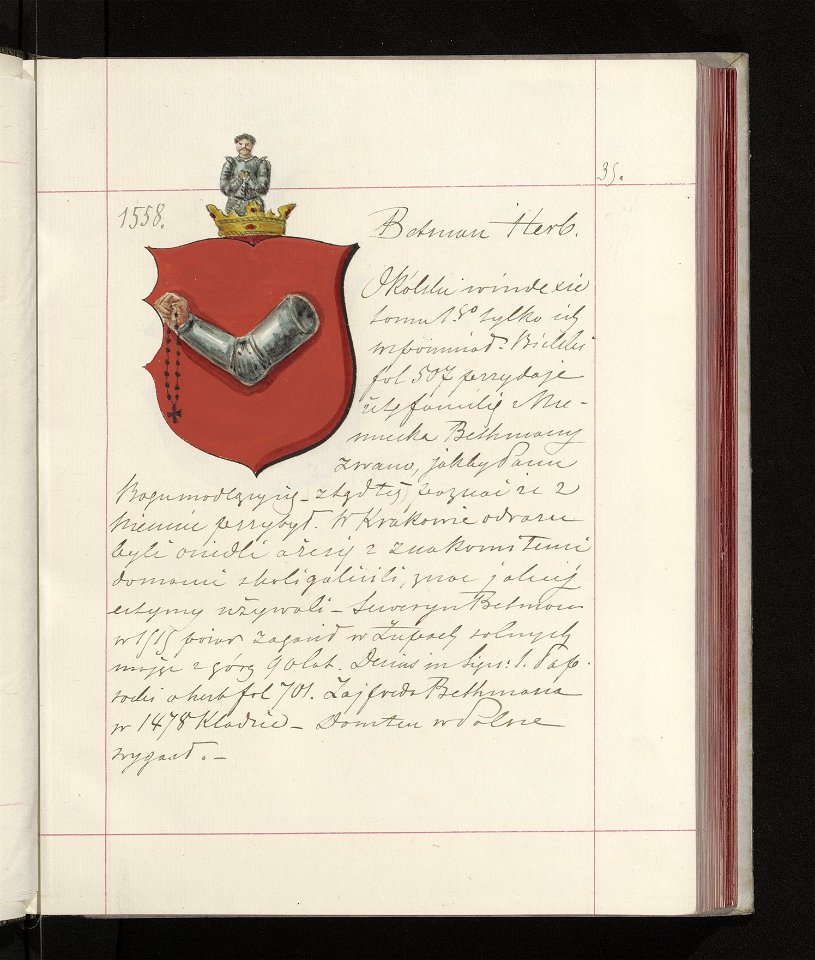 35.
1558.
Betman Herb.
Okólski w indexie
tomu 1go tylko ich
wspomniał. Bielski
fol 507 przydaje
iż tę familię z Nie-
miecka Bethmany
zwano, jakby Panu
Bogu modlących się - ztąd też poznać że z
Niemiec przybył. W Krakowie odrazu
byli osiedli a że się z znakomitemi
domami skoligalicili, znać jakiej
estymy używali - Seweryn Betman
w 1515 pożar zagasił w Żupach solnych
mając z górą 90 lat. Decius in Sigis: 1. Pap-
rocki o herb fol 701. Zajfreda Bethmana
w 1478 kładzie - Dom ten w Polsce
wygasł. -